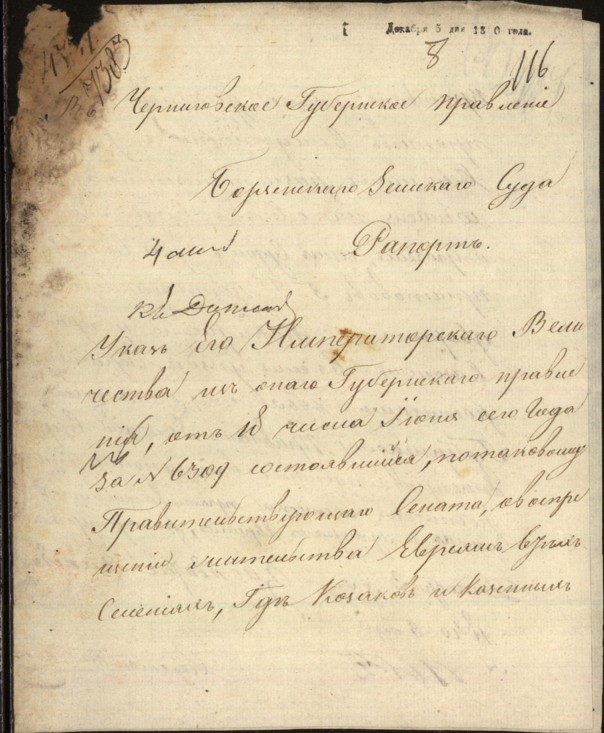 Декабря 5 дня 18 0 года.
8
116
1383
Черниговское Губернское правленіе
Борзенскаго Земскаго Суда
Рапортъ.
Указъ Его Императорскаго Вели
чества изъ онаго Губернскаго правле
нія, отъ 18 числа Іюня сего Года
за N 6309 состоявшійся, потаковому
Правительствующаго Сената, овоспре
щеніи жительства Евреямъ втѣхъ
Селеніяхъ, Гдѣ Козаковъ и Казенныхъ